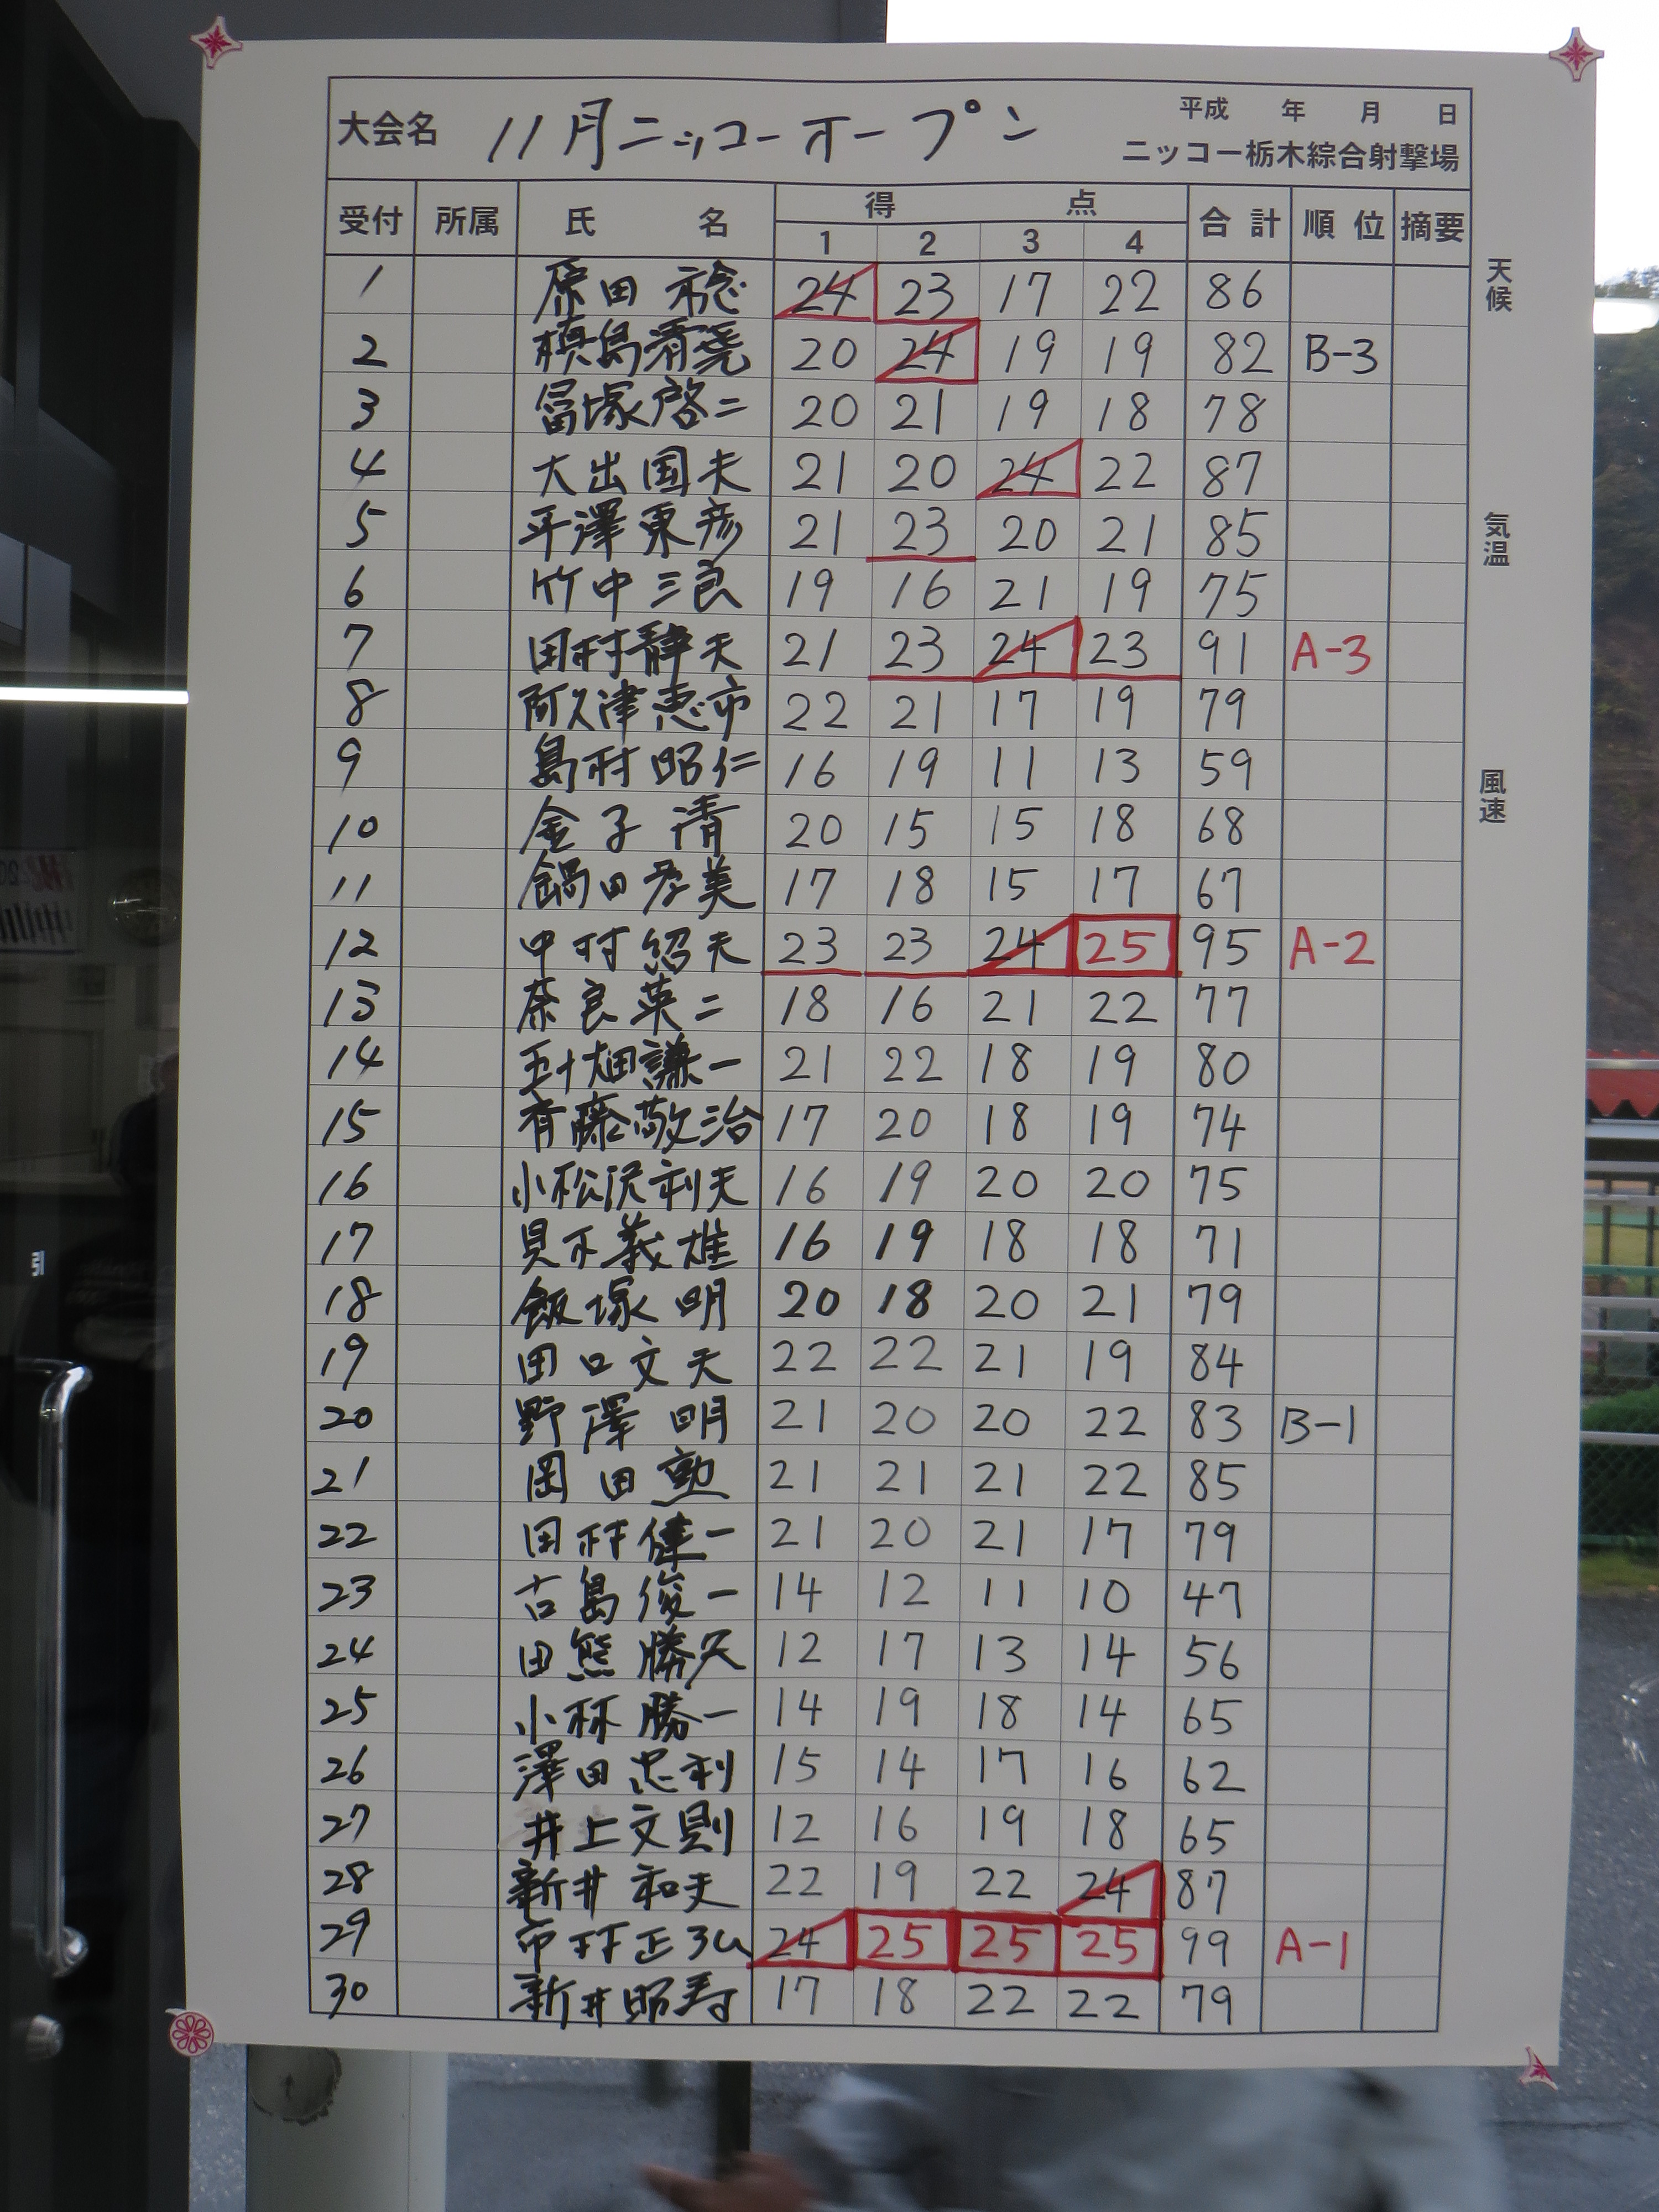 大会名 11月ニッコーオープン 平成 年 月 日
ニッコー栃木綜合射撃場
受付 所属 氏 名 得 点 合計 順位 摘要
1 2 3 4
1 原田 稔 24 23 17 22 86
2 槙島清堯 20 24 19 19 82 B-3
3 冨塚啓二 20 21 19 18 78
4 大出国夫 21 20 24 22 87
5 平澤東彦 21 23 20 21 85
6 竹中三良 19 16 21 19 75
7 田村静夫 21 23 24 23 91 A-3
8 阿久津恵市 22 21 17 19 79
9 島村昭仁 16 19 11 13 59
10 金子 清 20 15 15 18 68
11 鍋田孝美 17 18 15 17 67
12 中村紹夫 23 23 24 25 95 A-2
13 奈良英二 18 16 21 22 77
14 五十畑謙一 21 22 18 19 80
15 斉藤敬治 17 20 18 19 74
16 小松沢利夫 16 19 20 20 75
17 見下義雄 16 19 18 18 71
18 飯塚 明 20 18 20 21 79
19 田口文夫 22 22 21 19 84
20 野澤 明 21 20 20 22 83 B-1
21 岡田勲 21 21 21 22 85
22 田村健一 21 20 21 17 79
23 古島俊一 14 12 11 10 47
24 田熊勝久 12 17 13 14 56
25 小林勝一 14 19 18 14 65
26 澤田忠利 15 14 17 16 62
27 井上文則 12 16 19 18 65
28 新井和夫 22 19 22 24 87
29 市村正弘 24 25 25 25 99 A-1
30 新井昭寿 17 18 22 22 79
天候
気温
風速
引